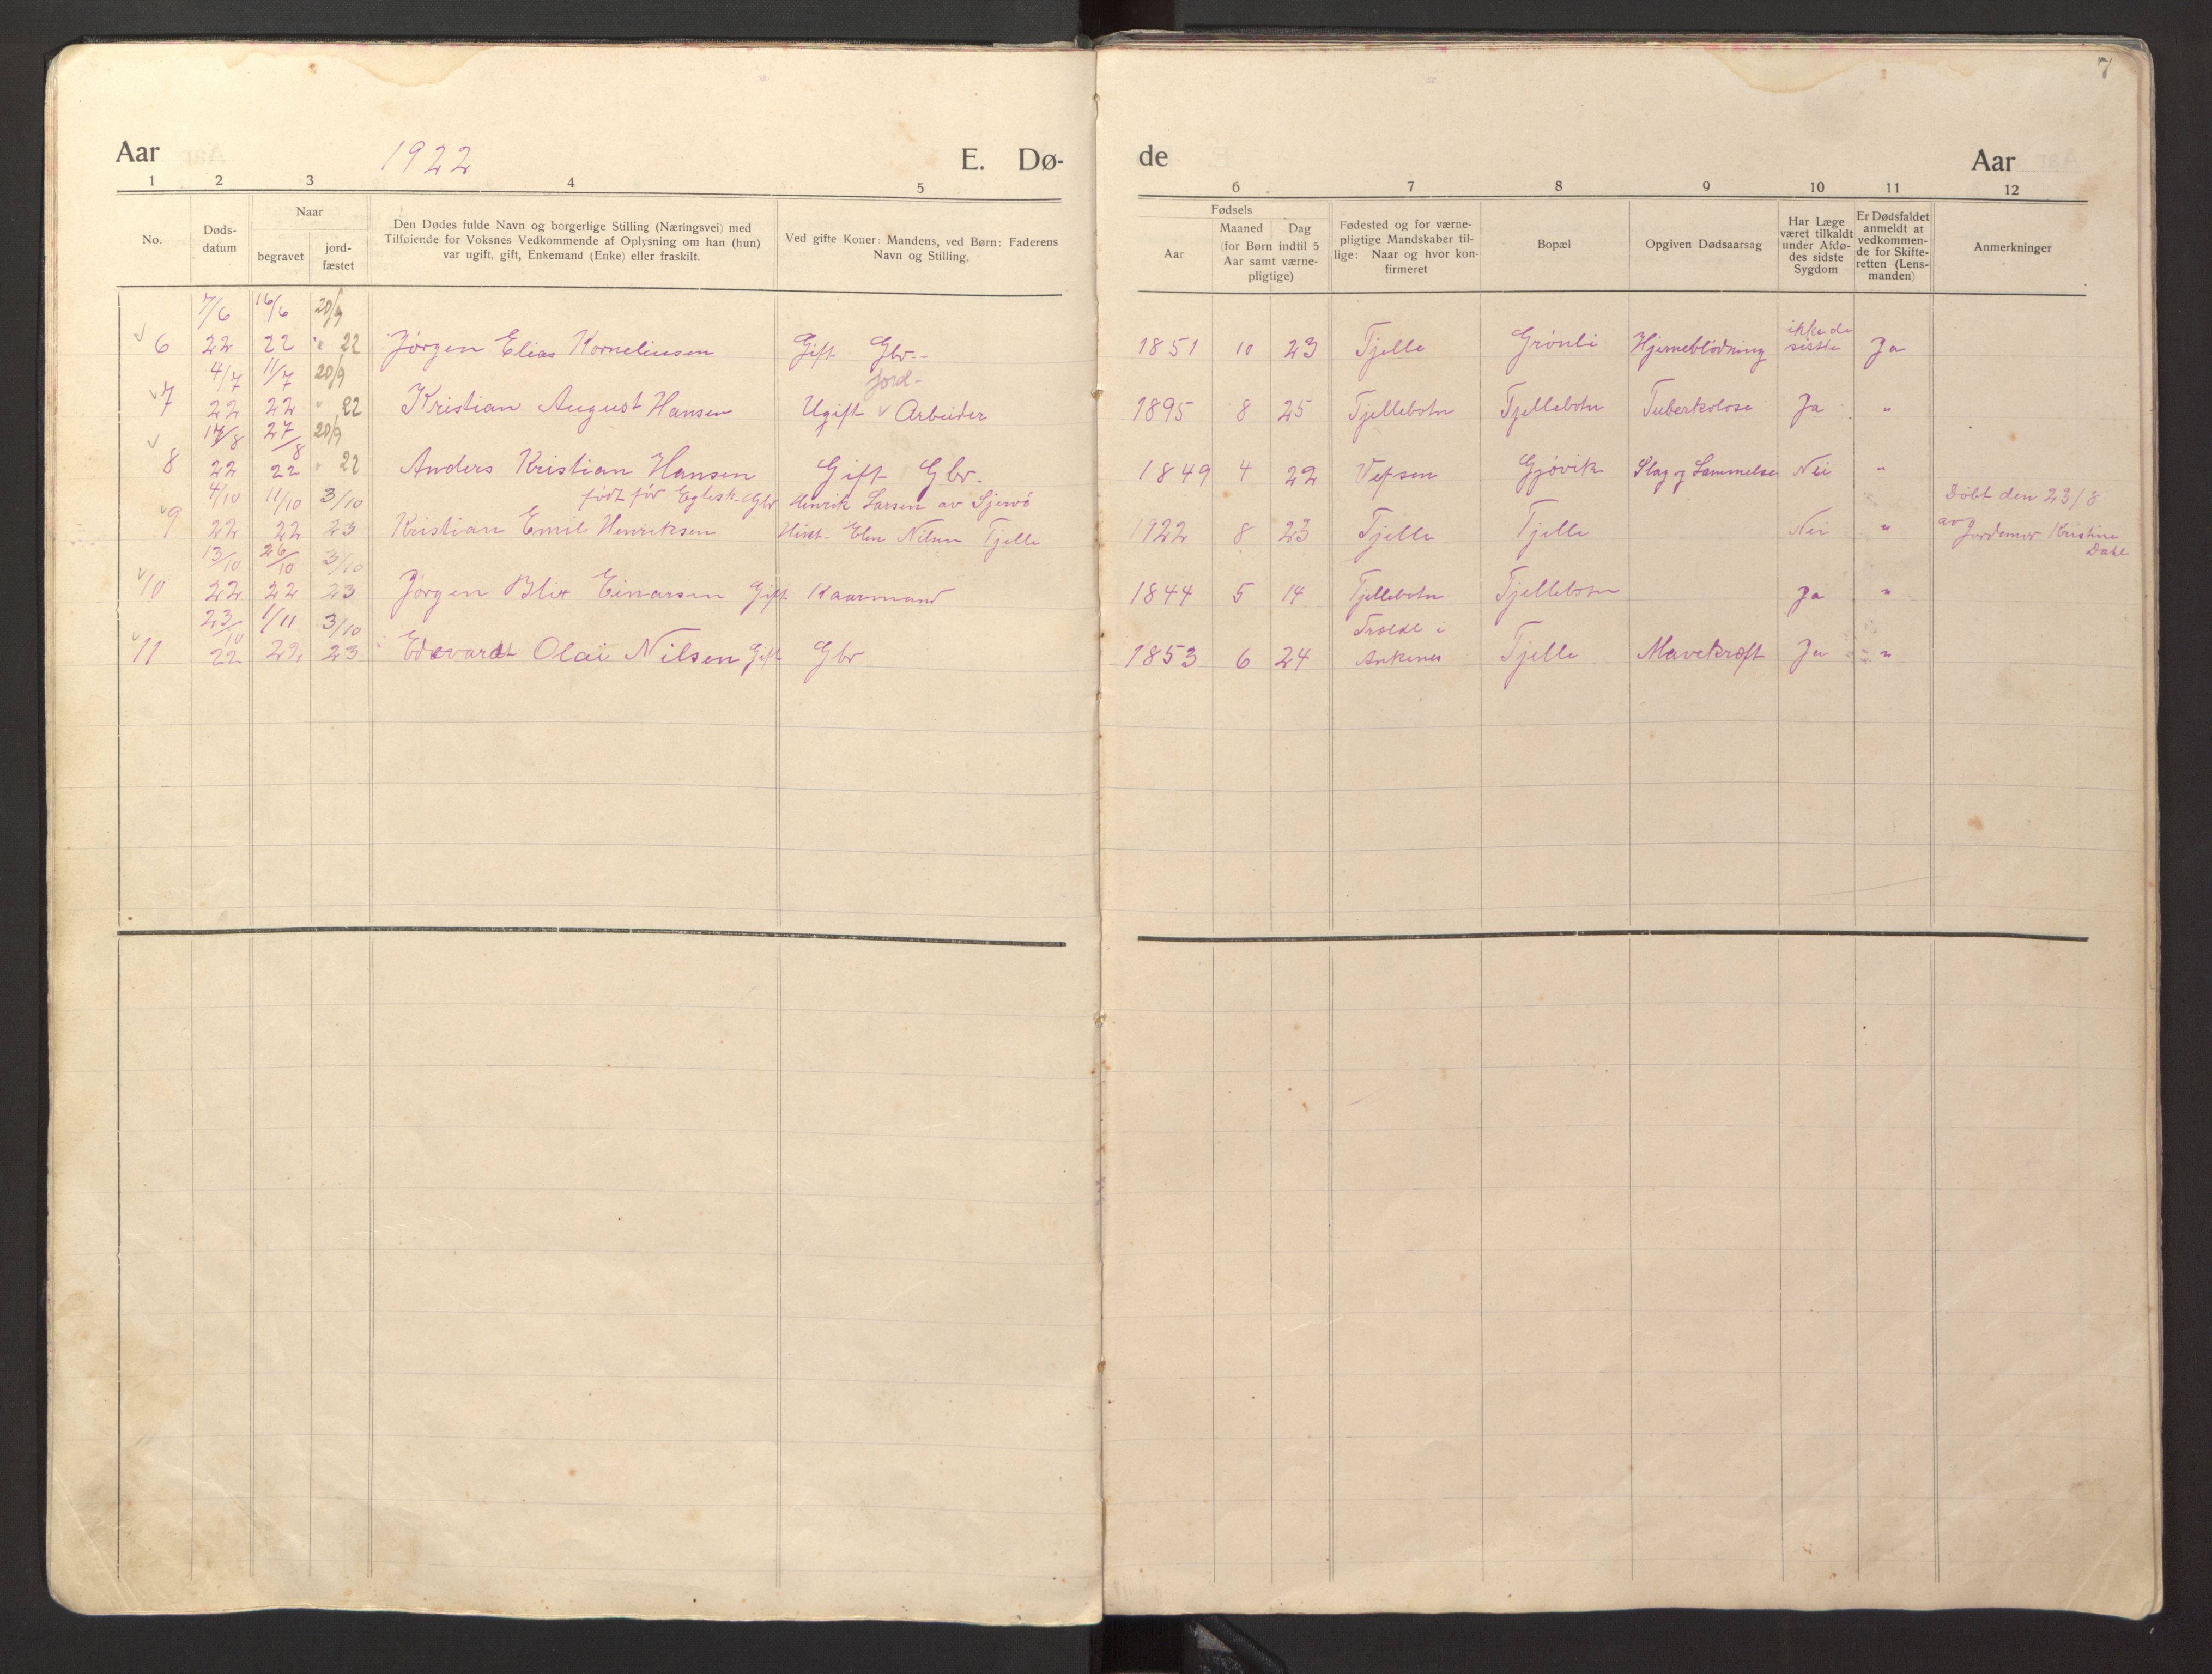 7
Aar 1922 E. Dø- de Aar
1 2 3 4 5 6 7 8 9 10 11 12
No.
Døds-
datum
Naar
begravet
jord-
fæstet
Den Dødes fulde Navn og borgerlige Stilling (Næringsvei) med
Tilføiende for Voksnes Vedkommende af Oplysning om han (hun)
var ugift, gift, Enkemand (Enke) eller fraskilt.
Ved gifte Koner: Mandens, ved Børn: Faderens
Navn og Stilling.
Fødsels
Aar
Maaned Dag
(for Børn indtil 5
Aar samt værne-
pligtige)
Fødested og for værne-
pligtige Mandskaber til-
lige: Naar og hvor kon-
firmeret
Bopæl
Opgiven Dødsaarsag
Har Læge
været tilkaldt
under Afdø-
des sidste
Sygdom
Er Dødsfaldet
anmeldt at
vedkommen-
de for Skifte-
retten (Lens-
manden)
Anmerkninger
7/6 16/6 20/9 ikke de
6 22 22 " 22 Jørgen Elias Korneliussen Gift Gbr. 1851 10 23 Tjelle Grønli Hjerneblødning siste Ja
4/7 11/7 20/9 Jord-
7 22 22 " 22 Kristian August Hansen Ugift Arbeider 1895 8 25 Tjellebotn Tjellebotn Tuberkolose Ja "
14/8 27/8 20/9
8 22 22 " 22 Anders Kristian Hansen Gift Gbr. 1849 4 22 Vefsen Gjøvik Slag og Lammelse Nei "
4/10 11/10 3/10 født før Egtesk. Gbr Henrik Larsen av Døbt den 23/8
9 22 22 23 Kristian Emil Henriksen Elen Nilsen Tjelle 1922 8 23 Tjelle Tjelle Nei " av Jordemor Kristine
Dahl
13/10 26/10 3/10
10 22 22 23 Jørgen Blix Einarsen Gift Kaarmand 1844 5 14 Tjellebotn Tjellebotn Ja "
23/10 1/11 3/10 i
11 22 22 23 Edevardt Olai Nilsen Gift Gbr 1853 6 24 Ankenes Tjelle Mavekræft Ja "